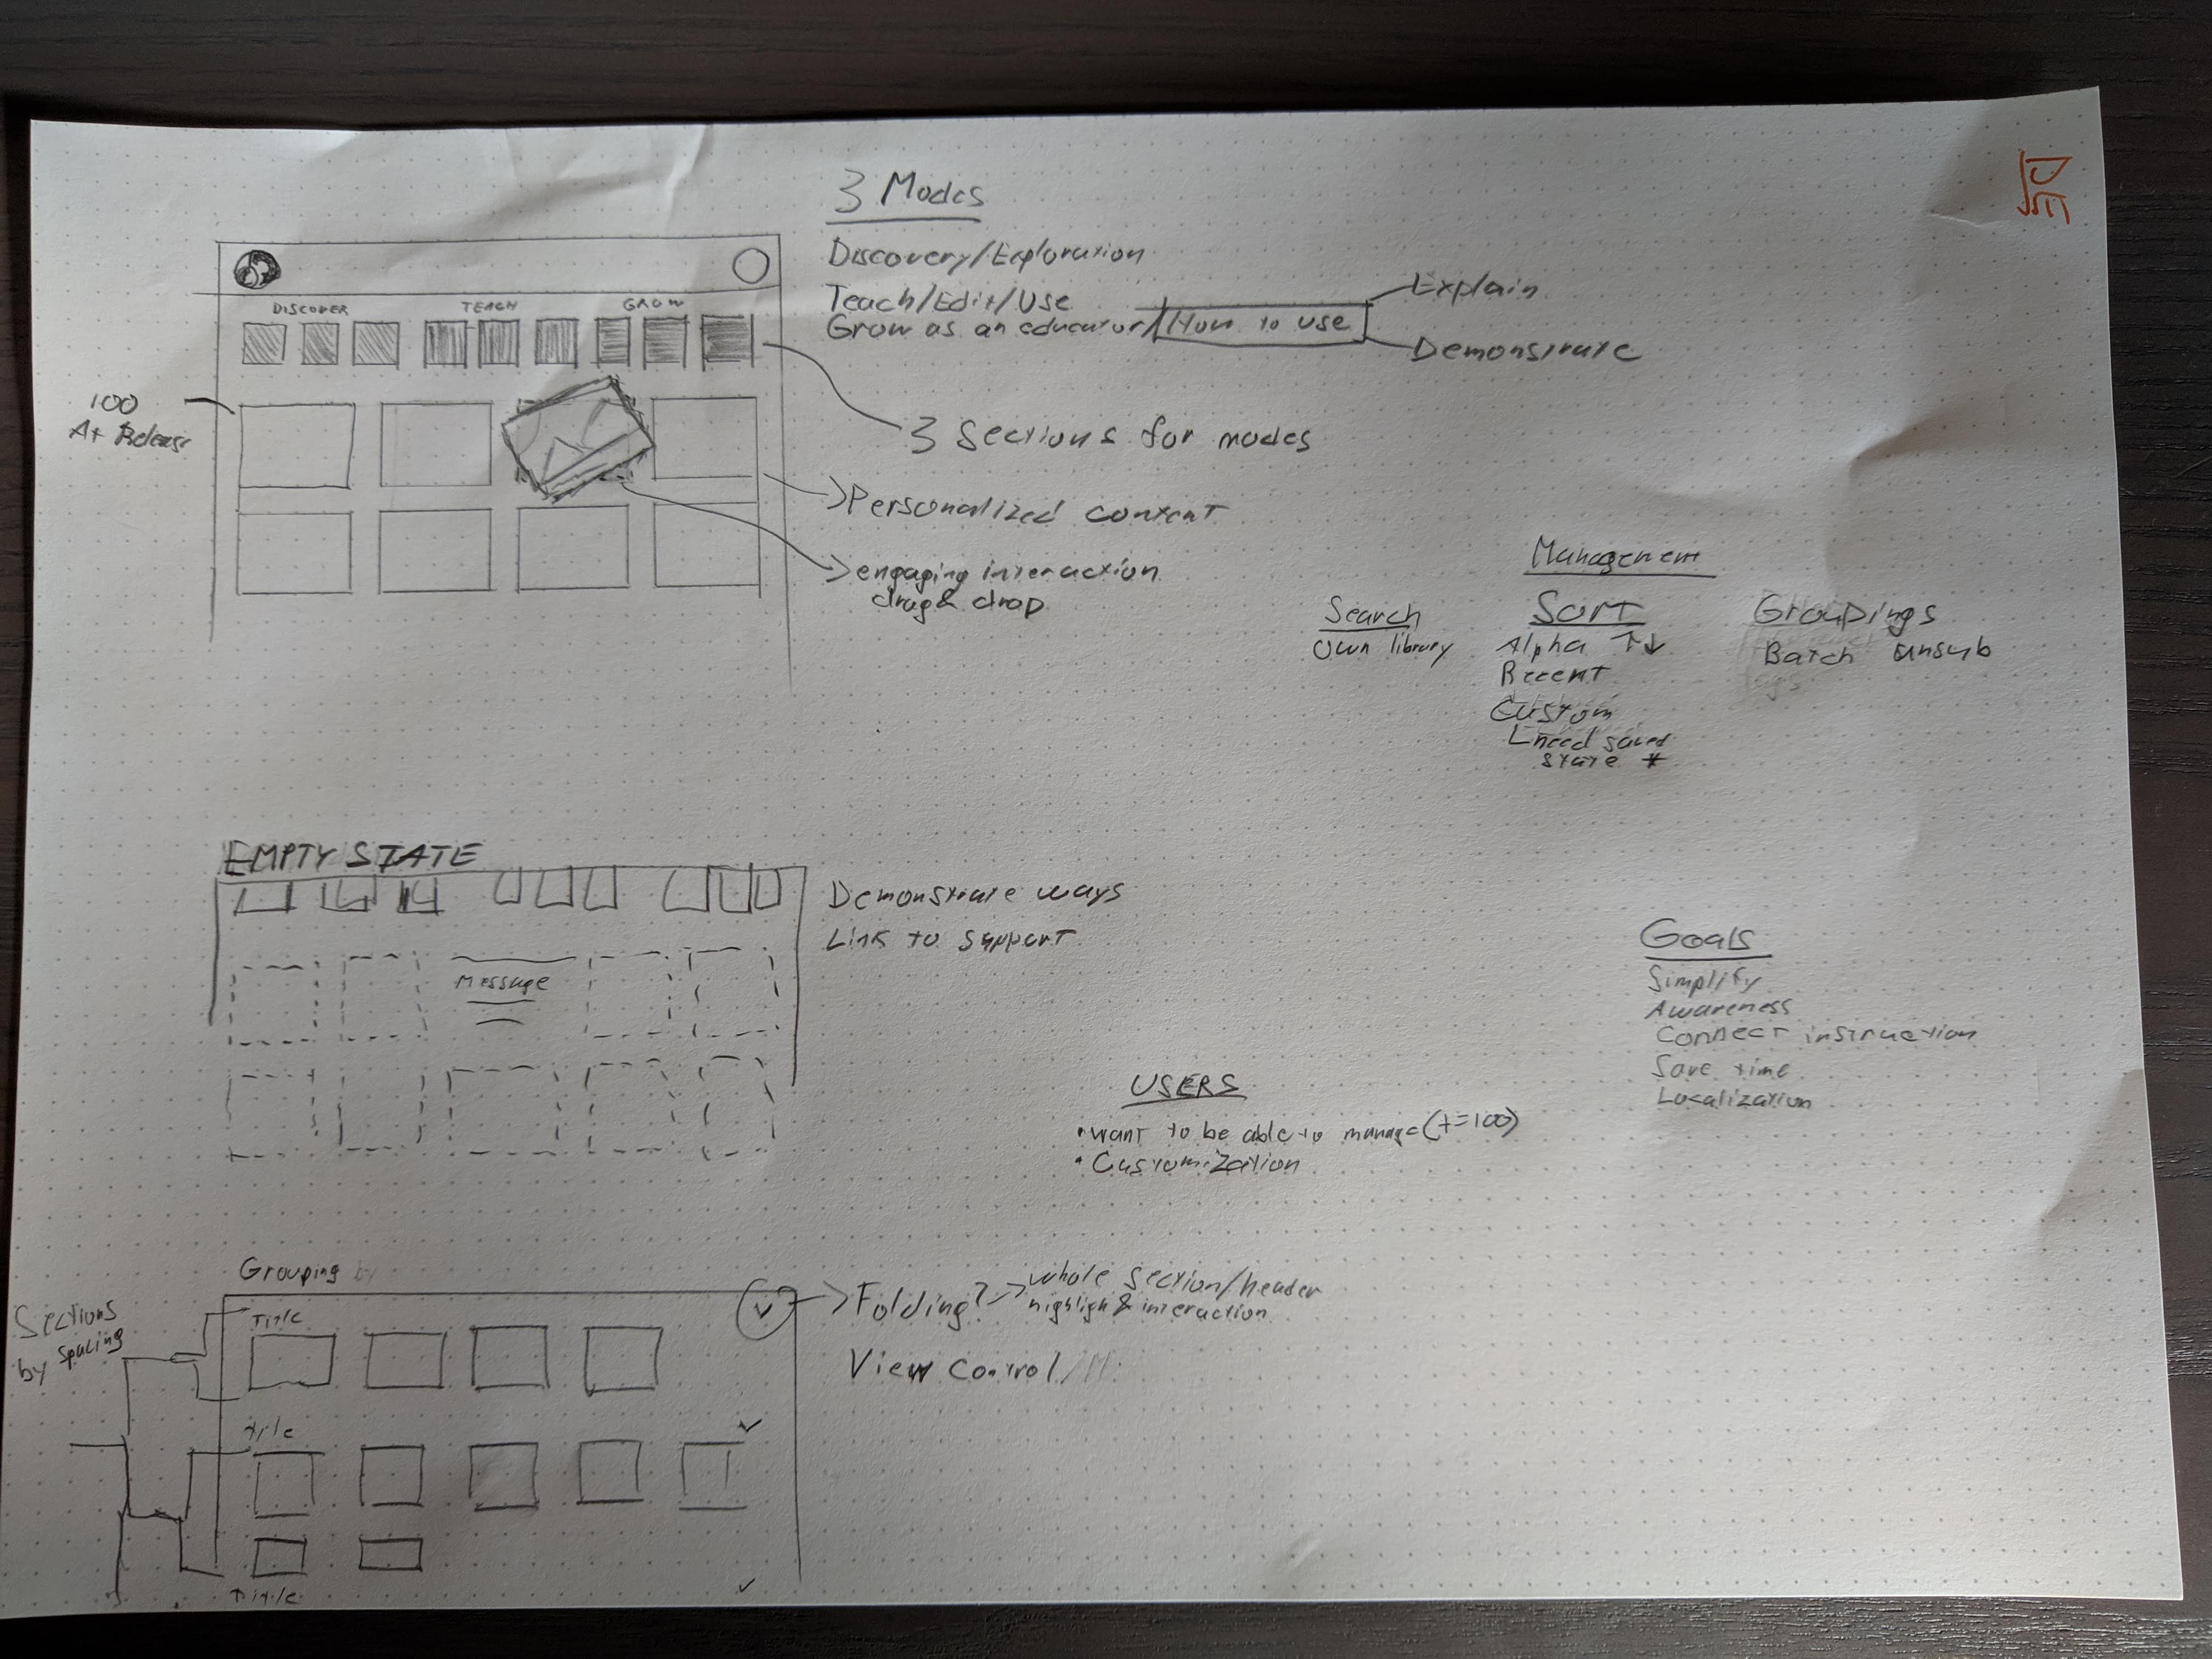 3 Modes
Discovery/Exploration
Teach/Edit/Use
Grow as an educator/How to use
Explain
Demonstrate
DISCOVER
TEACH
GROW
100
At Release
3 Sections for modes
Personalized content
engaging interaction
drag & drop
Management
Search
Own library
Sort
Alpha ↑↓
Recent
Custom
need saved
state *
Groupings
Batch unsub
EMPTY STATE
Message
Demonstrate ways
Link to support
Goals
Simplify
Awareness
Connect instruction
Save time
Localization
USERS
• want to be able to manage (t=100)
• Customization
Grouping by
Sections
by spacing
Title
Title
Title
Folding?
whole section/header
highligh & interaction
View Control/M